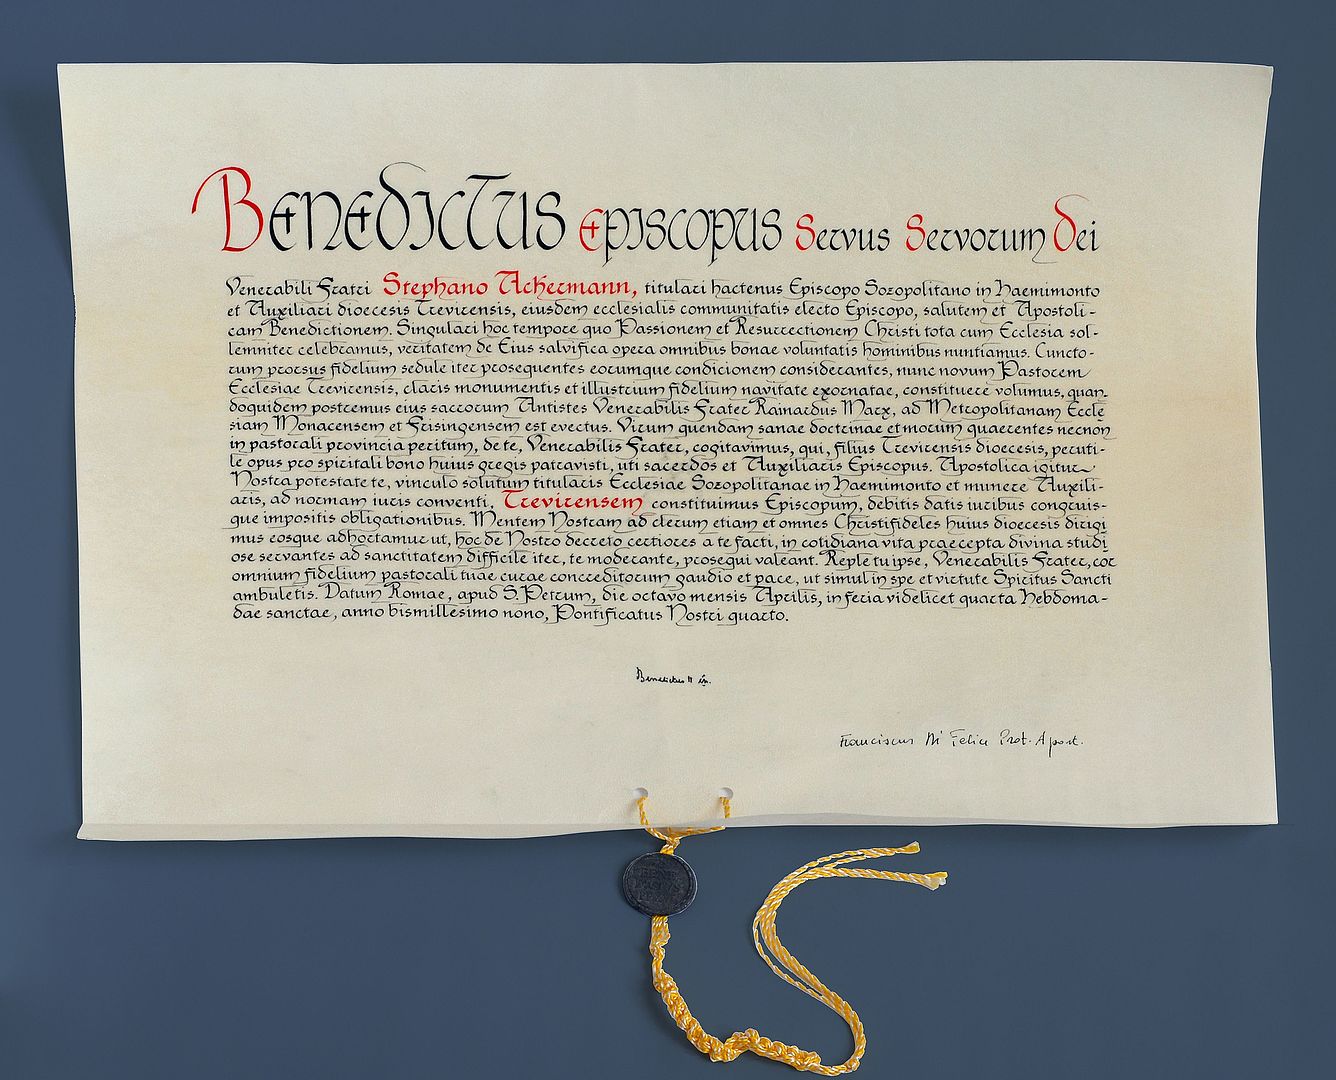 Benedictus Episcopus Servus Servorum Dei
Venerabili Fratri Stephano Ackermann, titulari hactenus Episcopo Sozopolitano in Haemimonto
et Auxiliari dioecesis Trevirensis, eiusdem ecclesialis communitatis electo Episcopo, salutem et Apostoli-
cam Benedictionem. Singulari hoc tempore quo Passionem et Resurrectionem Christi tota cum Ecclesia sol-
lemniter celebramus, veritatem de Eius salvifica opera omnibus bonae voluntatis hominibus nuntiamus. Cuncto-
rum prorsus fidelium sedule iter prosequentes eorumque condicionem considerantes, nunc novum Pastorem
Ecclesiae Trevirensis, claris monumentis et illustrium fidelium navitate exornatae, constituere volumus, quan-
doquidem postremus eius sacrorum Antistes Venerabilis Frater Rainardus Marx, ad Metropolitanam Eccle
siam Monacensem et Frisingensem est evectus. Virum quendam sanae doctrinae et morum quaerentes necnon
in pastorali provincia peritum, de te, Venerabilis Frater, cogitavimus, qui, filius Trevirensis dioecesis, peruti-
le opus pro spiritali bono huius gregis patravisti, uti sacerdos et Auxiliaris Episcopus. Apostolica igitur
Nostra potestate te, vinculo solutum titularis Ecclesiae Sozopolitanae in Haemimonto et munere Auxili-
aris, ad normam iuris conventi, Trevirensem constituimus Episcopum, debitis datis iuribus congruis-
que impositis obligationibus. Mentem Nostram ad clerum etiam et omnes Christifideles huius dioecesis dirigi
mus eosque adhortamur ut, hoc de Nostro decreto certiores a te facti, in cotidiana vita praecepta divina studi
ose servantes ad sanctitatem difficile iter, te moderante, prosequi valeant. Reple tu ipse, Venerabilis Frater, cor
omnium fidelium pastorali tuae curae concreditorum gaudio et pace, ut simul in spe et virtute Spiritus Sancti
ambuletis. Datum Romae, apud S. Petrum, die octavo mensis Aprilis, in feria videlicet quarta Hebdoma-
dae sanctae, anno bismillesimo nono, Pontificatus Nostri quarto.
Franciscus Di Felice Prot. Apost.